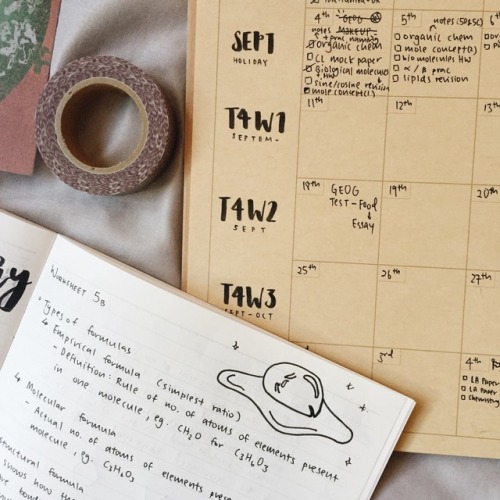 SEPT
HOLIDAY
4th
notes
organic chem
CL mock paper
Biological molecules
+ HW
sine/cosine revision
mole concept(1)
5th notes (5A5C)
organic chem
mole concept(2)
biomolecules HW
α / β prac
lipids revision
6th
T4W1
SEPTEM-
11th
12th
13th
T4W2
SEPT
18th GEOG
TEST - Food
↓
ESSAY
19th
20th
T4W3
SEPT - OCT
25th
26th
27th
3rd
4th
LA Paper
LA Paper
Chemistry
WORKSHEET 5B
Types of formulas
↳ Empirical formula (simplest ratio)
- Definition: Rule of no. of atoms of elements present
in one molecule, eg. CH₂O for C₃H₆O₃
↳ Molecular formula
- Actual no. of atoms of elements present
molecule, eg. C₃H₆O₃
structural formula
shows how the